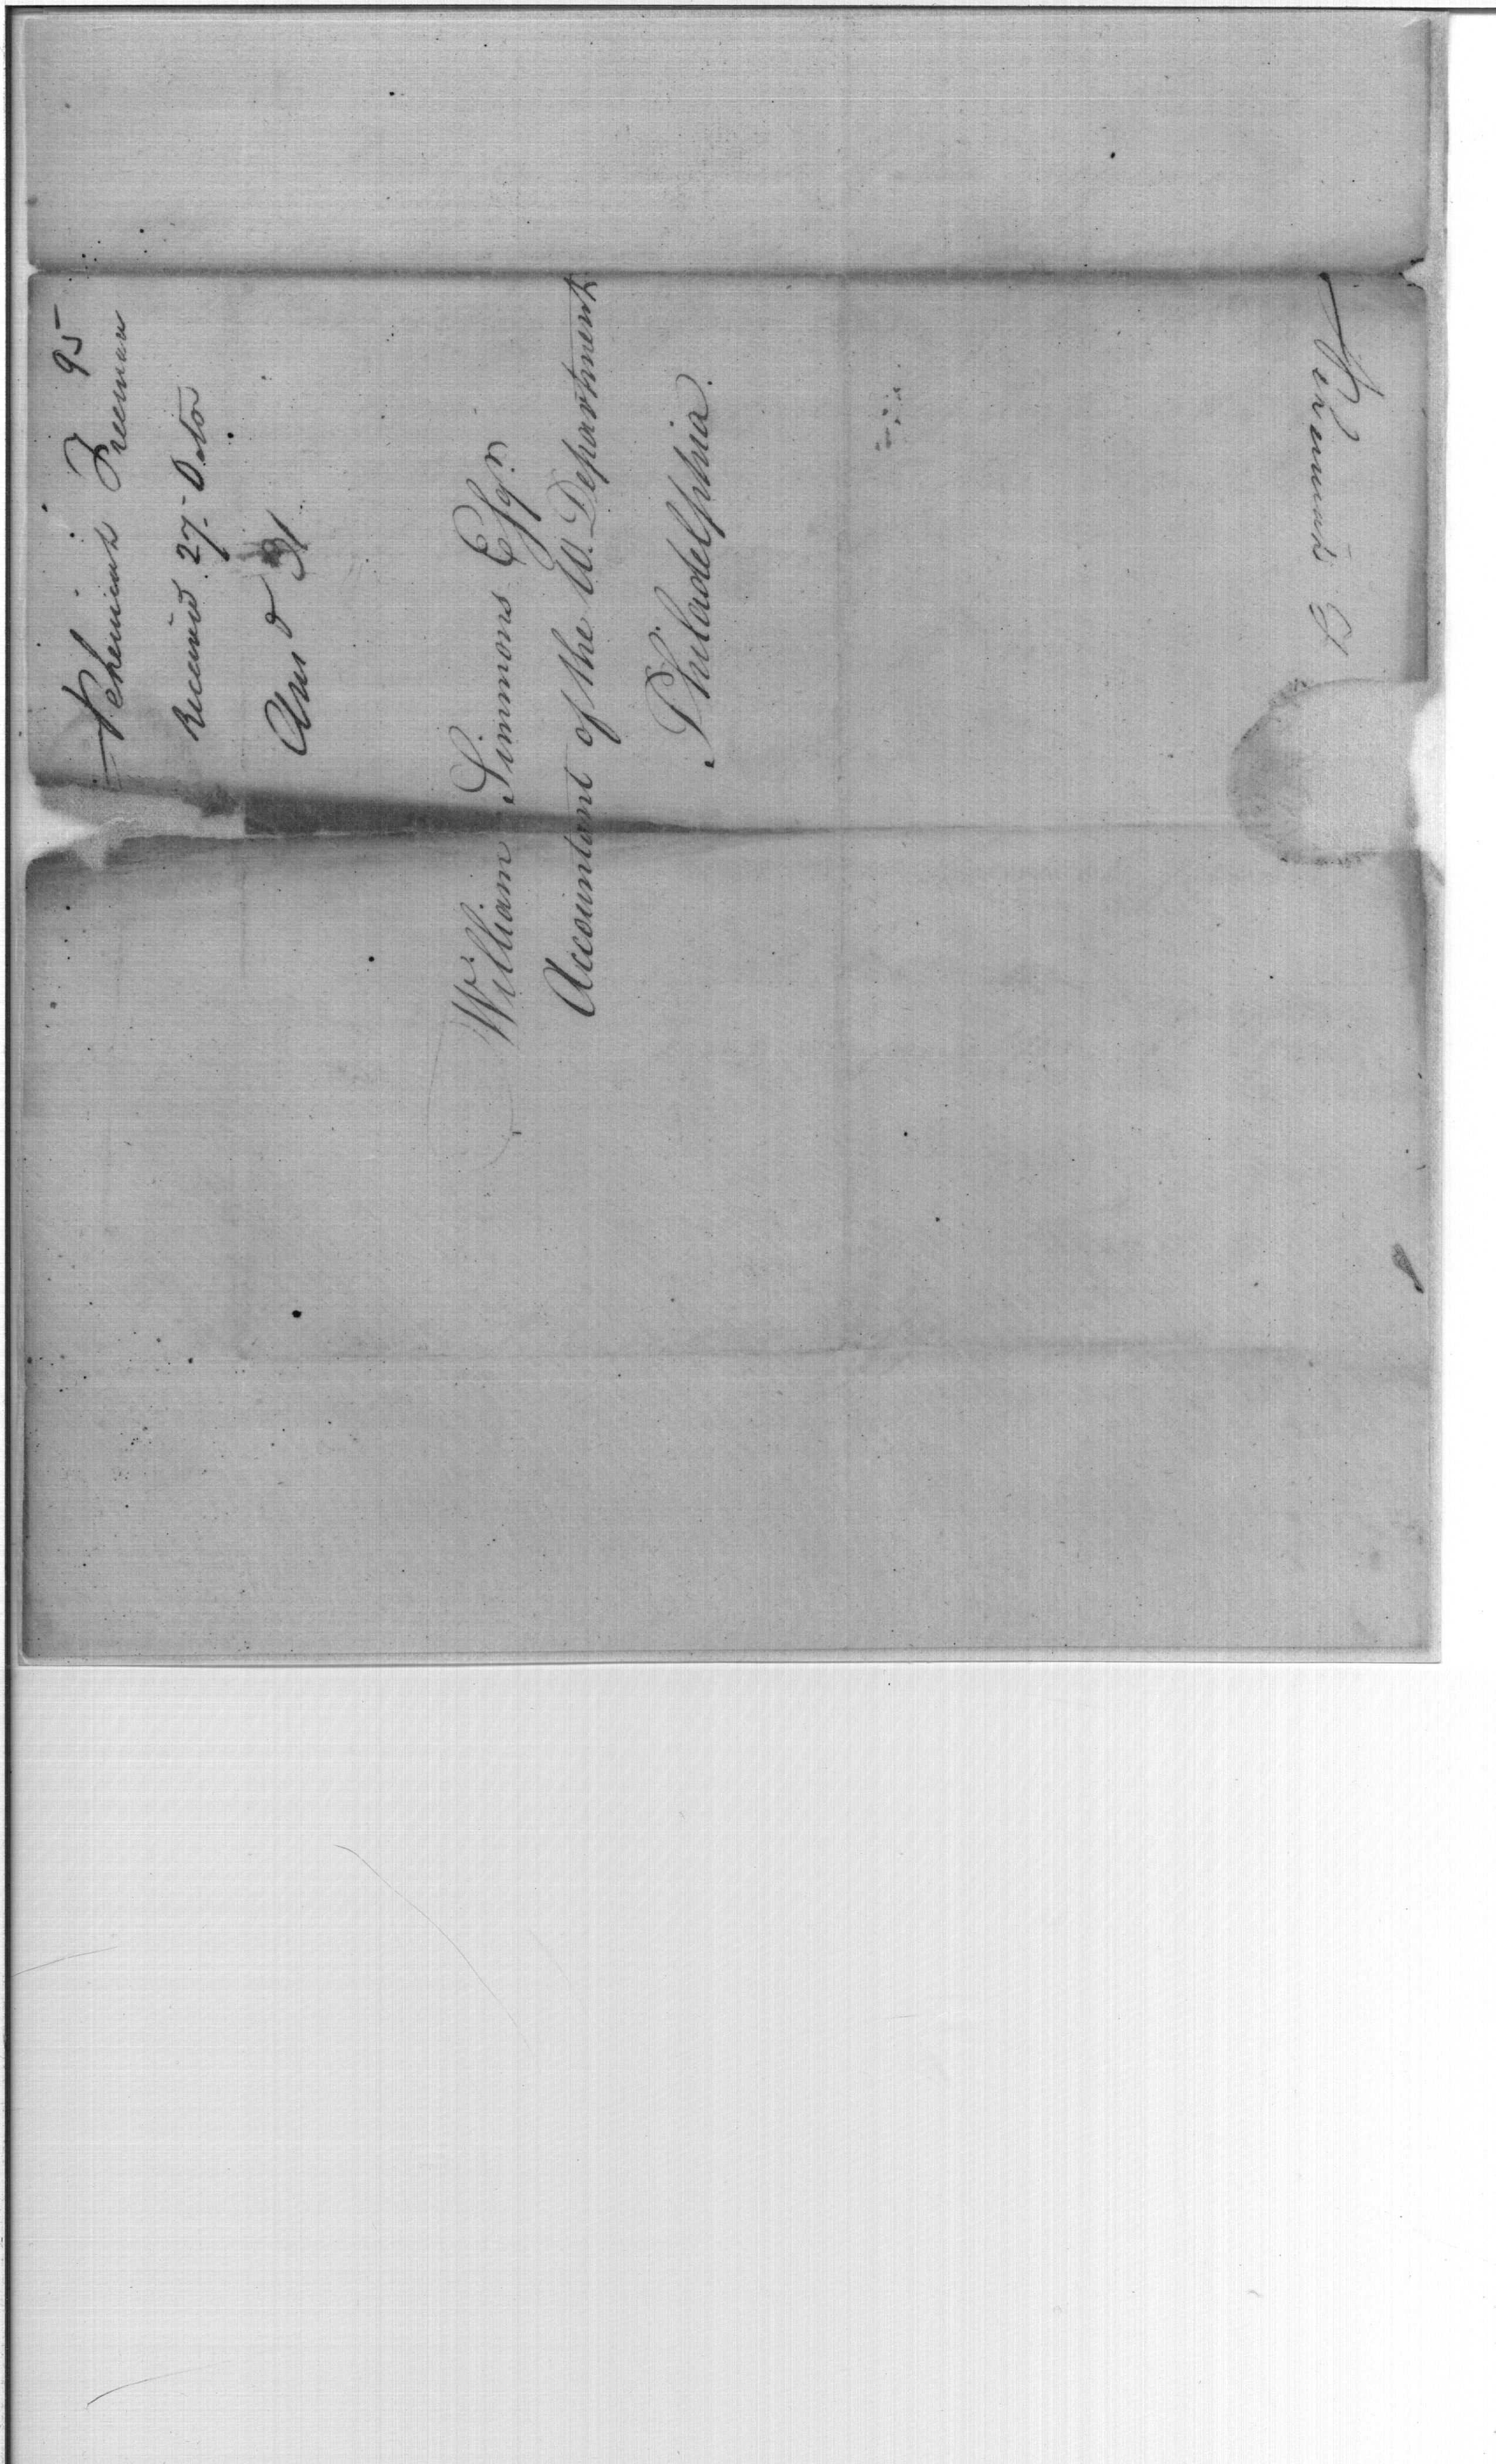 95
Nehemiah Freeman
Received 27. Octor
Ans d 31
William Simmons Esqr.
Accountant of the W. Department
Philadelphia.
Nehemiah F